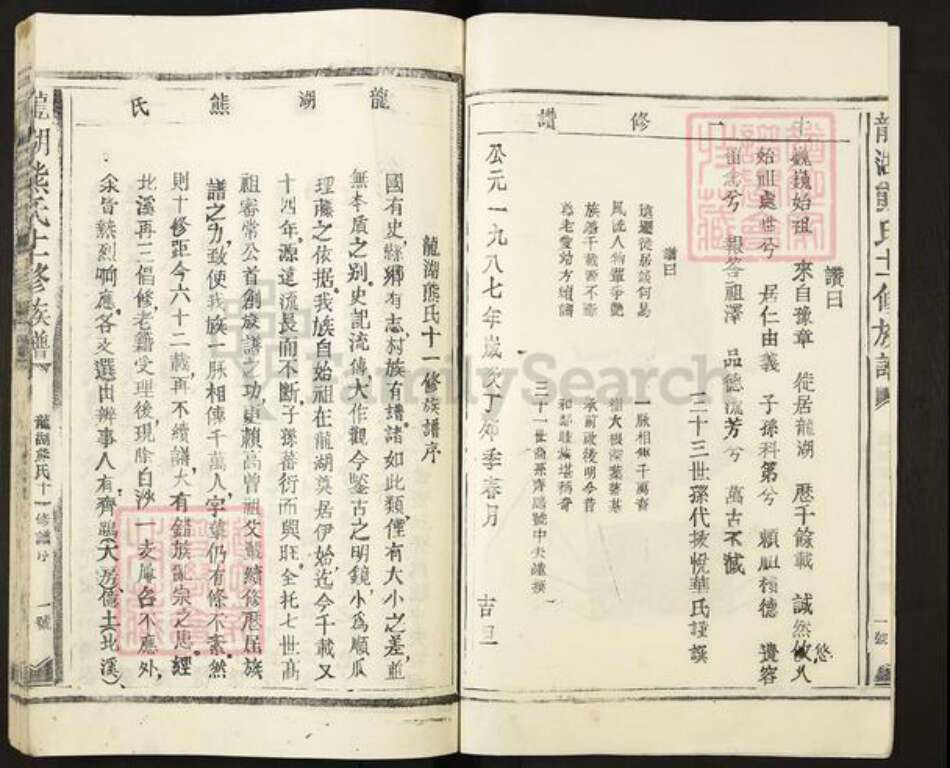 龍湖熊氏十一修族譜
一號
十一修讚
讚曰
巍巍始祖 來自豫章 徙居龍湖 歷千餘載 誠然悠久
始祖處世兮 居仁由義 子孫科第兮 賴祖積德 遺容
尚念兮 報答祖澤 品德流芳兮 萬古不滅
三十三世孫代拔悅華氏謹譔
讚曰
遠邇徙居談何易 一脈相傳千萬裔
風流人物輩爭艷 樹大根深葉基
族譜千載要不斷 承前啟後明今昔
尊老愛幼方續譜 和鄰睦族堪稱奇
三十一世裔孫齊 號中夫謹撰
公元一九八七年歲次丁卯季春月 吉旦
龍湖熊氏
龍湖熊氏十一修族譜序
國有史,縣鄉有志,村族有譜,諸如此類,僅有大小之差,並
無本質之別。史記流傳,大作觀今鑒古之明鏡,小為順瓜
理藤之依据。我族自始祖在龍湖奠居伊始,迄今千載又
十四年,源遠流長而不斷,子孫蕃衍而興旺。全托七世高
祖審常公首創族譜之功,更賴高曾祖父輩續修歷屆族
譜之力,致使我族一脈相傳千萬人,字輩仍有條不紊。然
則十修距今六十二載,再不續譜,大有錯族亂宗之患。經
北溪再三倡修,老籍受理後,現除白沙一支屢召不應外,
余皆熱烈响應。各支選出辦事人,有齊 大房,儒士北溪、
龍湖熊氏十一修族譜
龍湖熊氏十一修譜序
一號
FamilySearch